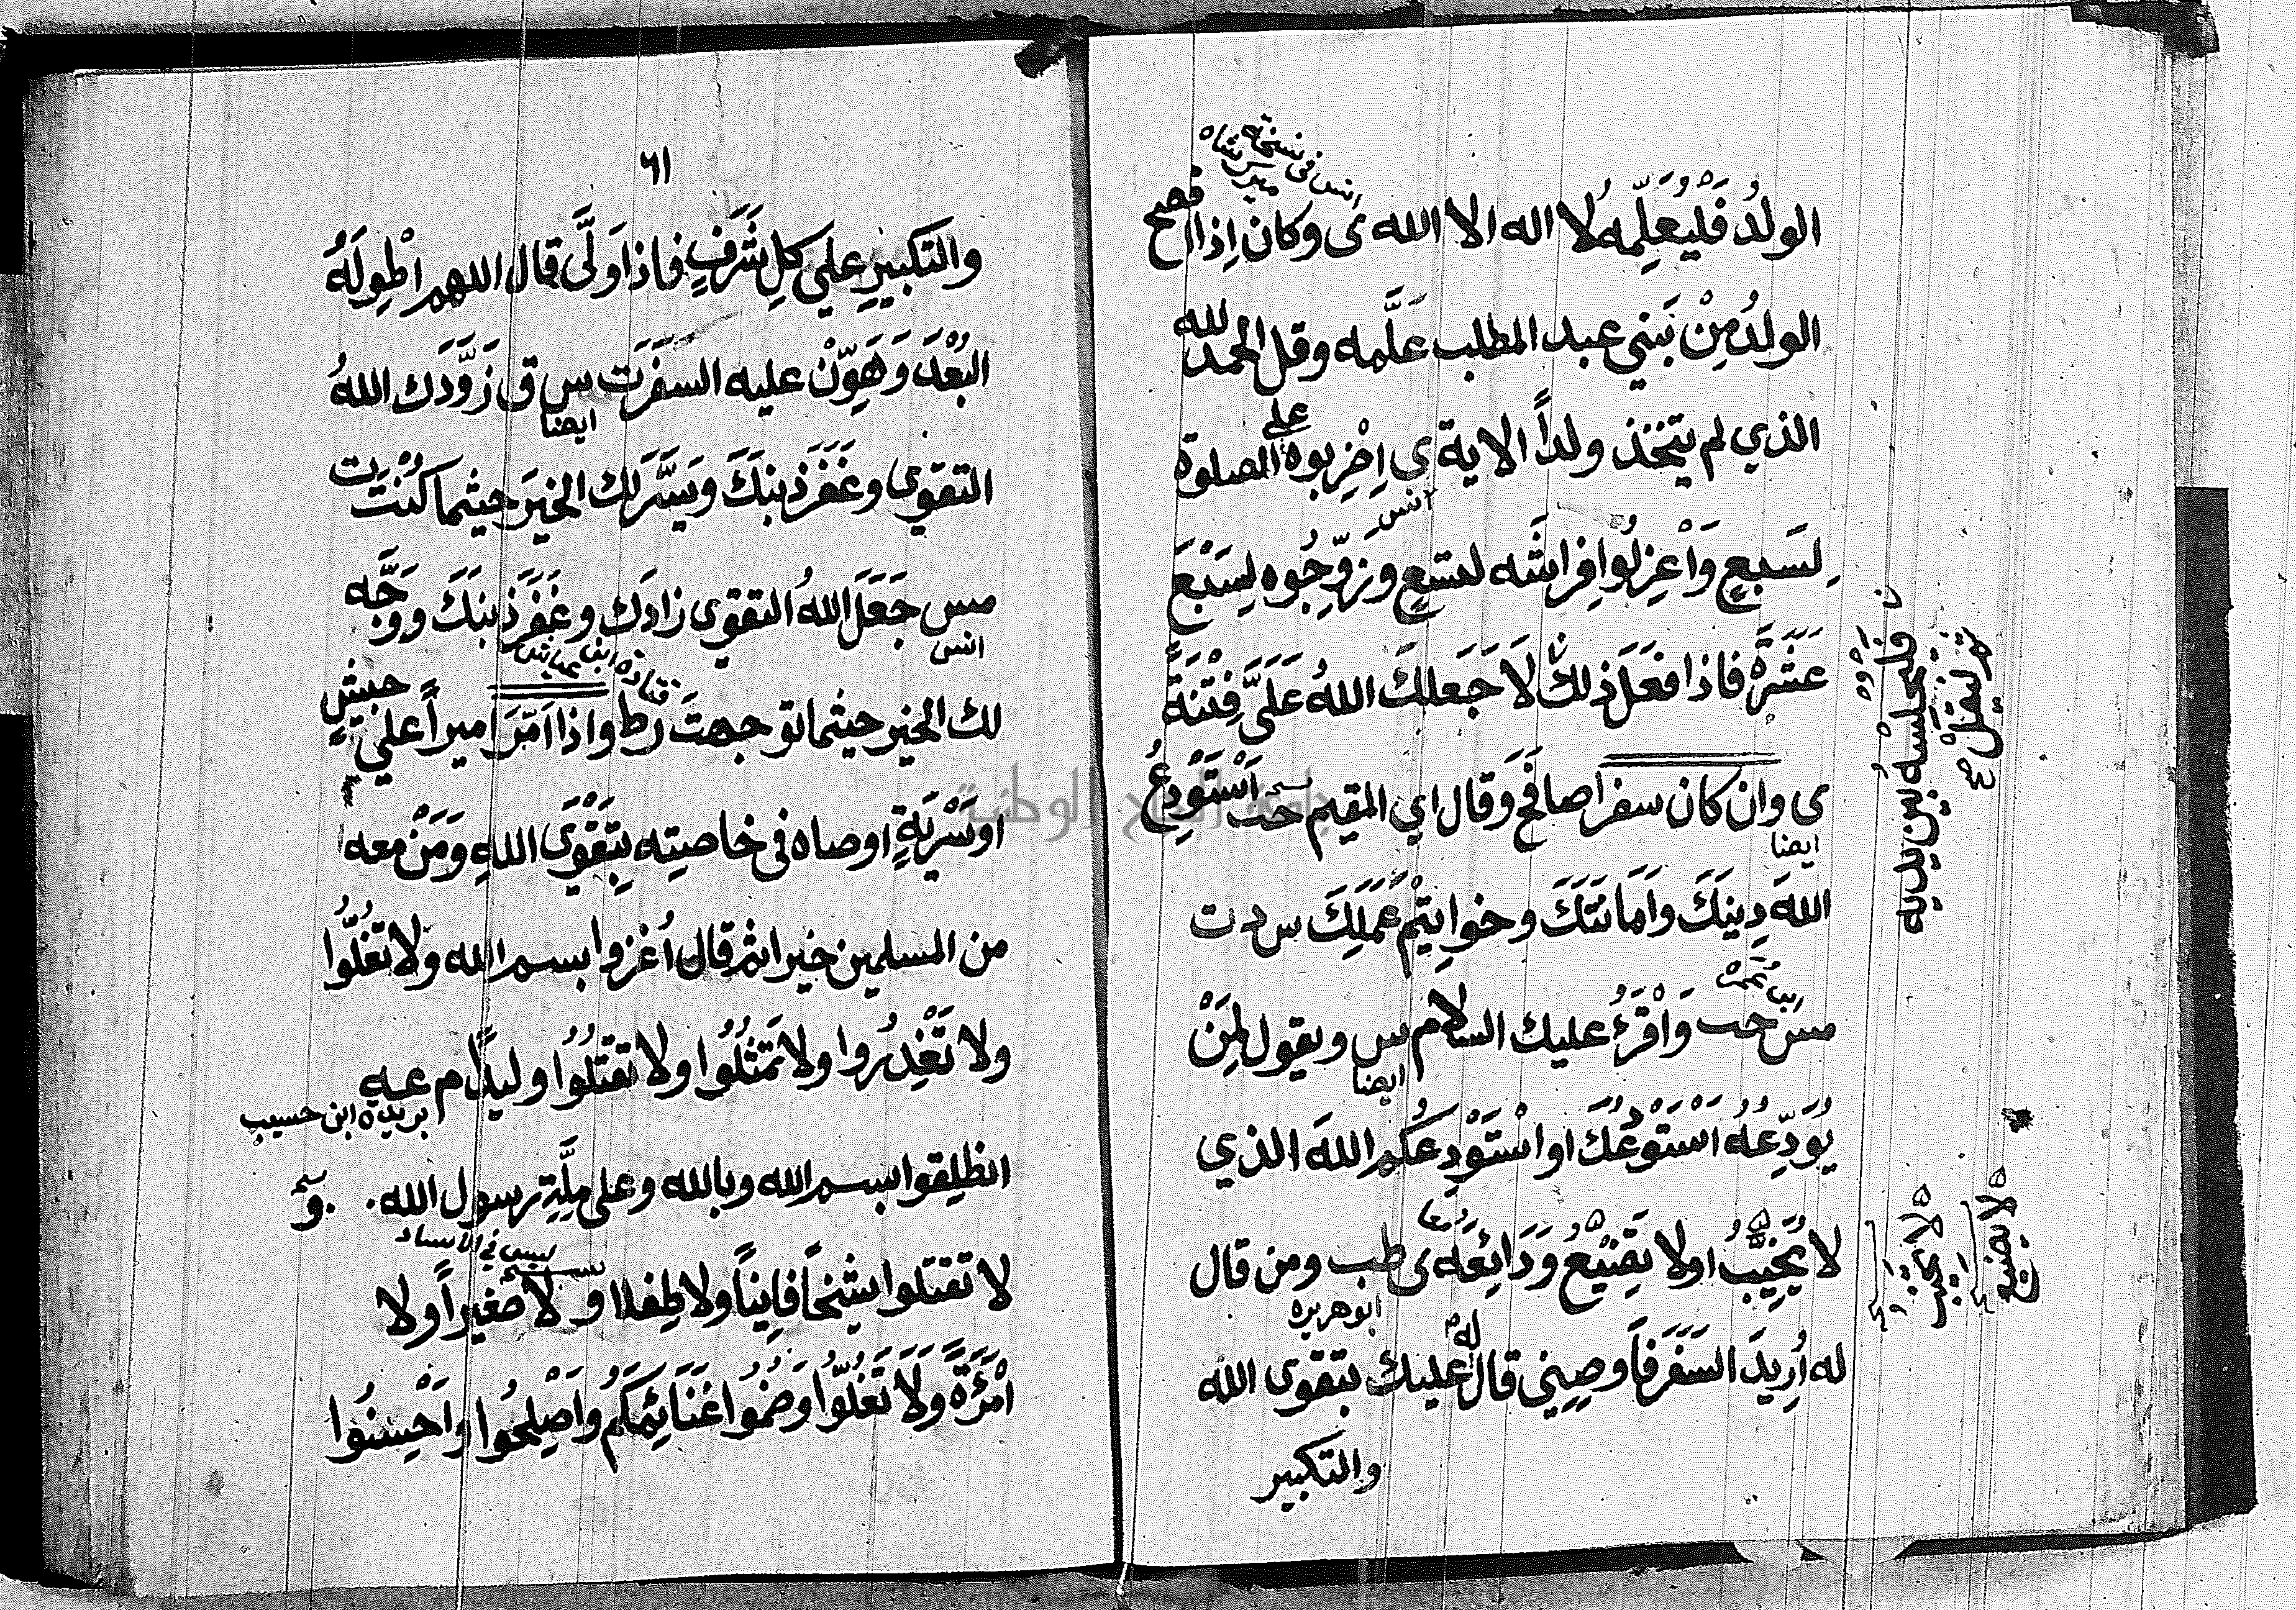 انس في نسخة
ميرك شاه
الولدُ فَلْيُعَلِّمْهُ لا اله الا الله ى وكان اِذا افصح
الولدُ مِنْ بَنِي عبد المطلب عَلَّمه وقل الحمد لله
الذي لم يتخذ ولداً الاية ى اِضْرِبوه على الصلوة
انس
لِسَبعٍ وَاعْزِلُوا فِراشَه لتسْعٍ وزوِّجُوه لِسَبْعَ
عَشَرَةَ فاذا فعَل ذلك لَا جَعلكَ اللهُ عَلَيَّ فِتْنَةً
ى وان كان سفرا صافَحَ وَقال اي المقيم اَسْتَوْدِعُ
ايضا
اللهَ دِينَكَ وَاَمَانَتَكَ وخواتِيْمَ عَمَلِكَ س د ت
ابن عمر
مس حب وَاَقْرَءُ عليك السلام س ويقول لِمَنْ
ايضا
يُوَدِّعُهُ اَسْتَوْدِعُكَ او اَسْتَوْدِعُكم اللهَ الذي
لا يَخِيْبُ او لا يَضِيْعُ وَدَائِعُه ى طب ومن قال
معا
ابو هريره
له اُرِيدُ السَفَرَ فَاَوصِنِي قال له عليك بتقوى الله
والتكبير
فلْيجلسْه بين يديه
ثم ليقلْ صح
لا تخيب
لا يضيع
٦١
والتكبيرِ علي كلِ شَرَفٍ فاذا وَلَّى قال اللهم اطْوِ لَهُ
البُعْدَ وَهَوِّنْ عليه السفَرَ ت س ق زَوَّدَك اللهُ
ايضا
التقوى وغَفَرَ ذنبَكَ ويَسَّرَ لك الخيرَ حيثما كُنْتَ ت
مس جَعَلَ اللهُ التقوى زادَك وغَفَرَ ذنبَكَ ووَجَّه
انس
قتادة ابن عياش
لك الخير حيثما توجهتَ ط واذا اَمَّرَ اميراً علي جيشٍ
او سَرِيَّةٍ اوصاه في خاصته بِتَقْوَى اللهِ وَمَنْ معه
من المسلمين خيرا ثم قال اُغزوا بسم الله وَلا تغُلُّوا
ولا تَغْدِرُوا ولا تَمْثُلُوا ولا تقتُلُوا وليداً م عه
بريده ابن حسيب
انطلِقوا بسم الله وبالله وعلى مِلَّةِ رسول الله . و
ليس في الاسناد
لا تقتلوا شيخاً فانِيناً ولا طِفلا وَلا صَغيراً ولا
امْرَءَةً وَلَا تَغُلُّوا وَضُمُّوا غَنَائِمَكُمْ وَاَصْلِحُوا وَاَحْسِنُوا